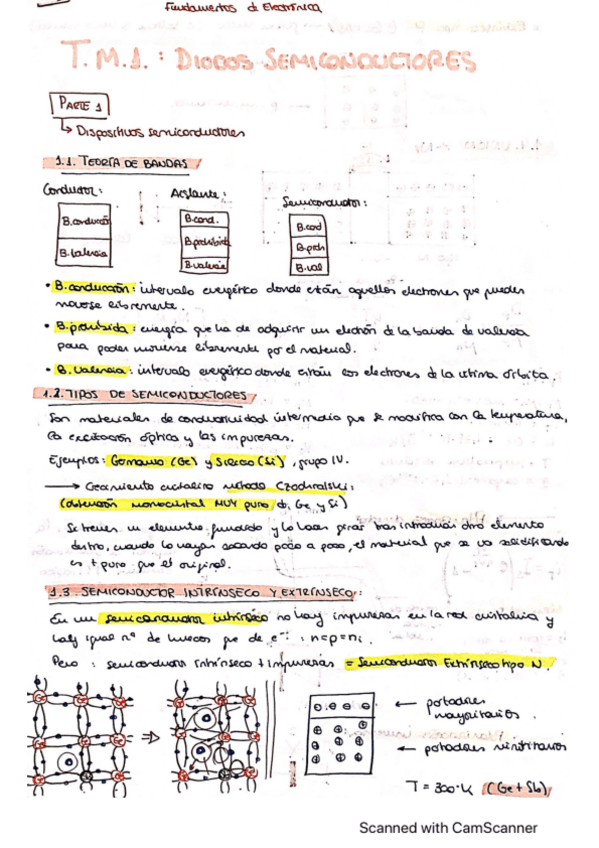 Fundamentos de Electrónica
T.M.1.: DIODOS SEMICONDUCTORES
PARTE 1
↳ Dispositivos semiconductores
1.1. TEORÍA DE BANDAS
Conductor: Aislante: Semiconductor:
B.conducción B.cond. B.cond
B.Valencia B.prohibida B.proh
B.valencia B.val
• B.conducción: intervalo energético donde están aquellos electrones que pueden
moverse libremente.
• B.prohibida: energía que ha de adquirir un electrón de la banda de valencia
para poder moverse libremente por el material.
• B.Valencia: intervalo energético donde están los electrones de la última órbita.
1.2. TIPOS DE SEMICONDUCTORES
Son materiales de conductividad intermedia que se modifica con la temperatura,
la excitación óptica y las impurezas.
Ejemplos: Germanio (Ge) y Silicio (Si), grupo IV.
→ Crecimiento cristalino método Czochralski:
(obtención monocristal MUY puro de Ge y Si)
Se tienen un elemento fundido y lo hacen girar tras introducir otro elemento
dentro, cuando lo vayan sacando poco a poco, el material que se va solidificando
es + puro que el original.
1.3. SEMICONDUCTOR INTRÍNSECO Y EXTRÍNSECO:
En un semiconductor intrínseco no hay impurezas en la red cristalina y
hay igual nº de huecos que de e⁻: n=p=ni.
Pero: semiconductor intrínseco + impurezas = Semiconductor Extrínseco tipo N.
← portadores
mayoritarios.
← portadores minoritarios
T = 300ºK (Ge+Sb)
Scanned with CamScanner